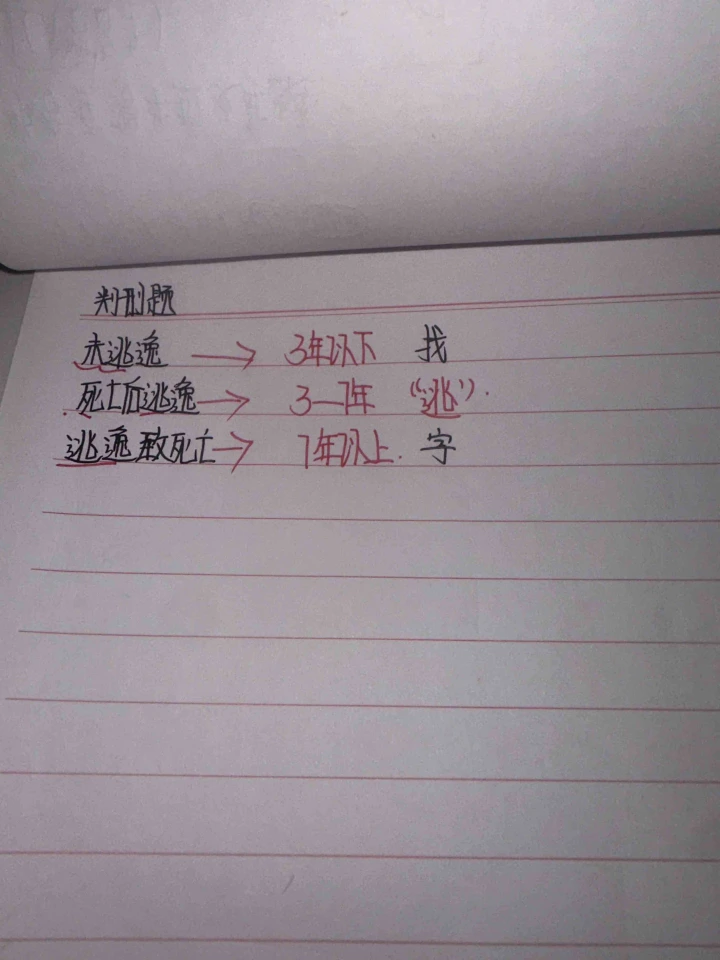 判刑题
未逃逸 → 3年以下 找
死亡后逃逸 → 3—7年 (“逃”).
逃逸致死亡 → 7年以上. 字